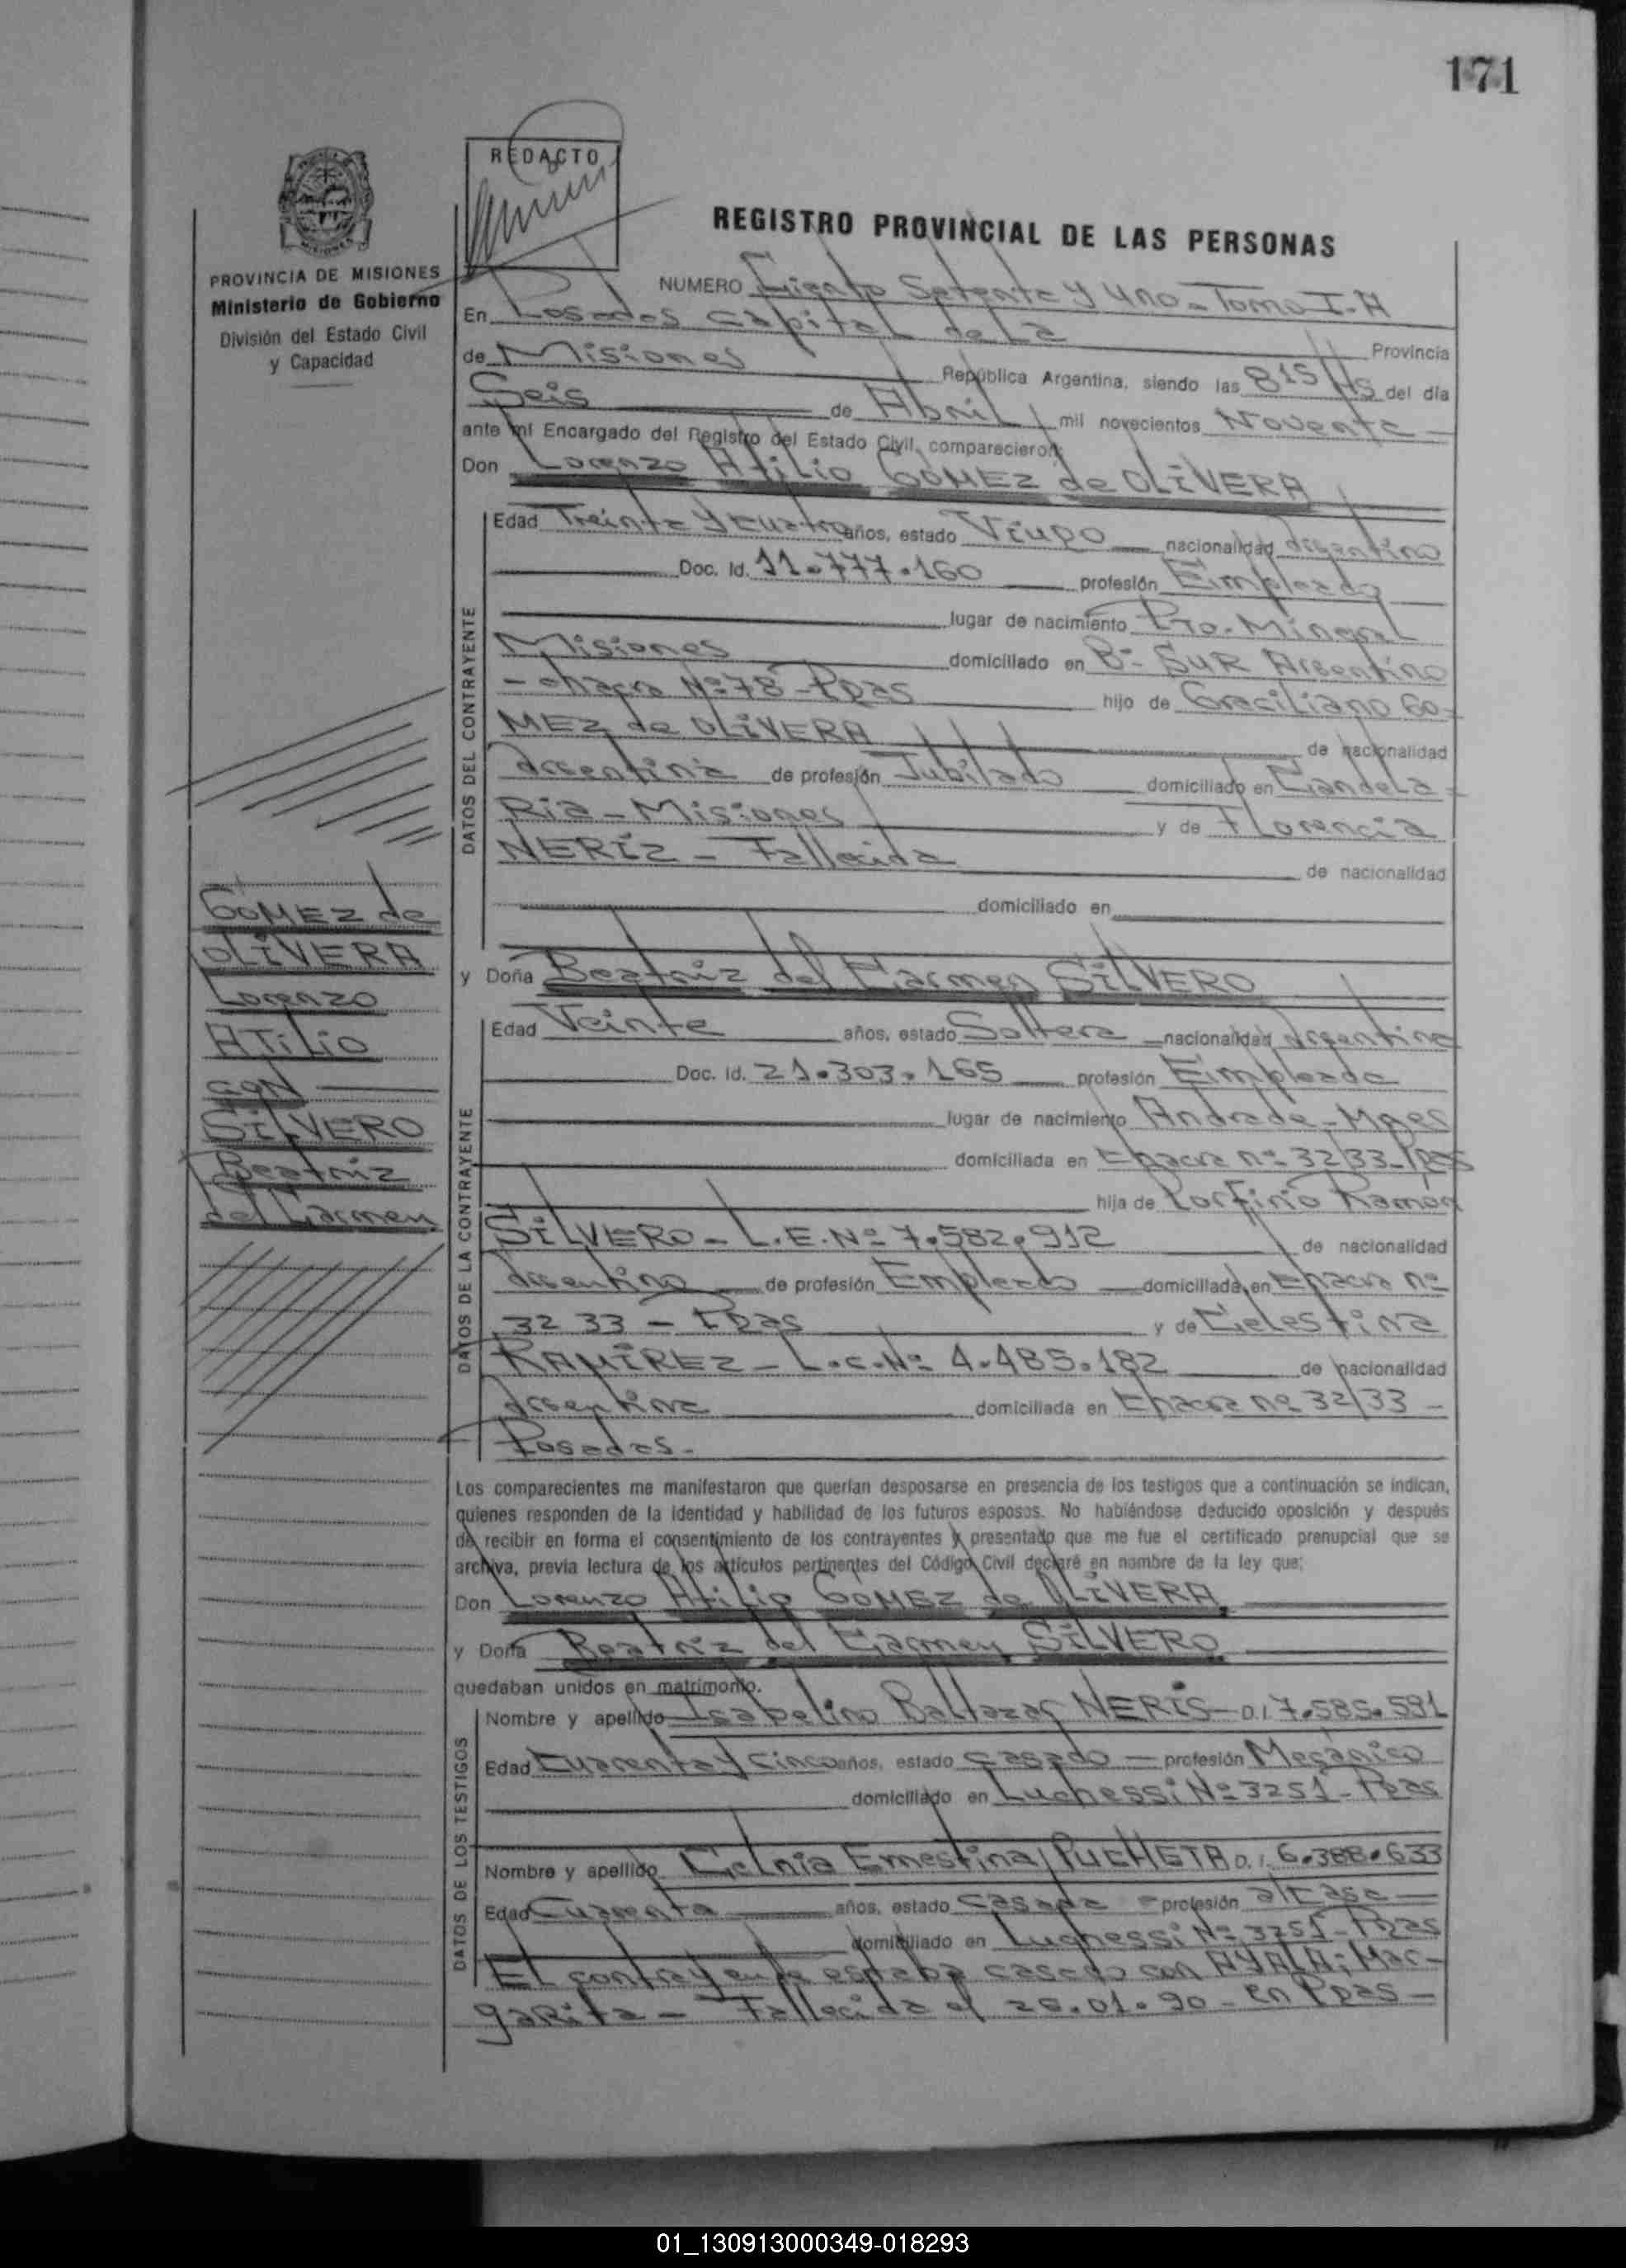 171
REDACTO
REGISTRO PROVINCIAL DE LAS PERSONAS
PROVINCIA DE MISIONES
Ministerio de Gobierno
División del Estado Civil
y Capacidad
NUMERO Ciento Setenta y uno - Tomo I-A
En Posadas Capital de La Provincia
de Misiones República Argentina, siendo las 815 Hs del día
Seis de Abril mil novecientos Noventa
ante mí Encargado del Registro del Estado Civil, comparecieron:
Don Lorenzo Atilio GOMEZ de OLIVERA
DATOS DEL CONTRAYENTE
Edad Treinta y cuatro años, estado Viudo nacionalidad argentino
Doc. Id. 11.777.160 profesión Empleado
lugar de nacimiento Pto. Mineral
Misiones domiciliado en Bº SUR Argentino
- chacra Nº 78 - Pdas hijo de Graciliano GO-
MEZ de OLIVERA de nacionalidad
argentina de profesión Jubilado domiciliado en Candela-
Ria - Misiones y de Florencia
NERIZ - Fallecida de nacionalidad
domiciliado en
y Doña Beatriz del Carmen SILVERO
DATOS DE LA CONTRAYENTE
Edad Veinte años, estado Soltera nacionalidad argentina
Doc. Id. 21.303.165 profesión Empleada
lugar de nacimiento Andrade - Mnes
domiciliada en Chacra nº 32/33 - Pdas
hija de Porfirio Ramon
SILVERO - L.E. Nº 7.582.912 de nacionalidad
argentino de profesión Empleado domiciliada en Chacra nº
32 33 - Pdas y de Celestina
RAMIREZ - L.C. Nº 4.485.182 de nacionalidad
argentina domiciliada en Chacra nº 32/33 -
Posadas.
GOMEZ de
OLIVERA
Lorenzo
ATiLio
CON
SILVERO
Beatriz
del Carmen
Los comparecientes me manifestaron que querían desposarse en presencia de los testigos que a continuación se indican,
quienes responden de la identidad y habilidad de los futuros esposos. No habiéndose deducido oposición y después
de recibir en forma el consentimiento de los contrayentes y presentado que me fue el certificado prenupcial que se
archiva, previa lectura de los artículos pertinentes del Código Civil declaré en nombre de la ley que:
Don Lorenzo Atilio GOMEZ de OLIVERA
y Doña Beatriz del Carmen SILVERO
quedaban unidos en matrimonio.
DATOS DE LOS TESTIGOS
Nombre y apellido Isabelino Baltazar NERIS - D.I. 7.585.591
Edad Cuarenta y Cinco años, estado casado - profesión Mecánico
domiciliado en Luchessi Nº 3251 - Pdas
Nombre y apellido Ernestina PUCHETA D.I. 6.388.633
Edad Cuarenta años, estado casada - profesión
domiciliado en Luchessi Nº 3251 - Pdas
EL contrayente estaba casado con AYALA; Mar-
gaRita - Fallecida el .01.90 - en Pdas -
01_130913000349-018293